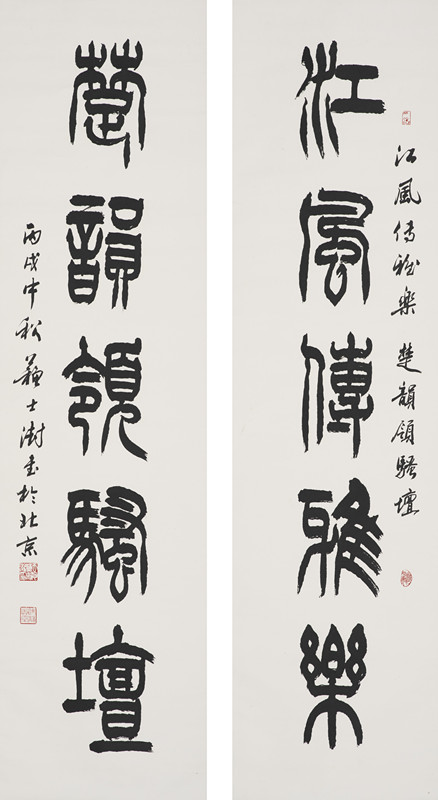 江風傳雅樂
江風傳雅樂 楚韻領騷壇
楚韻領騷壇
丙戌中秋蘇士澍書於北京